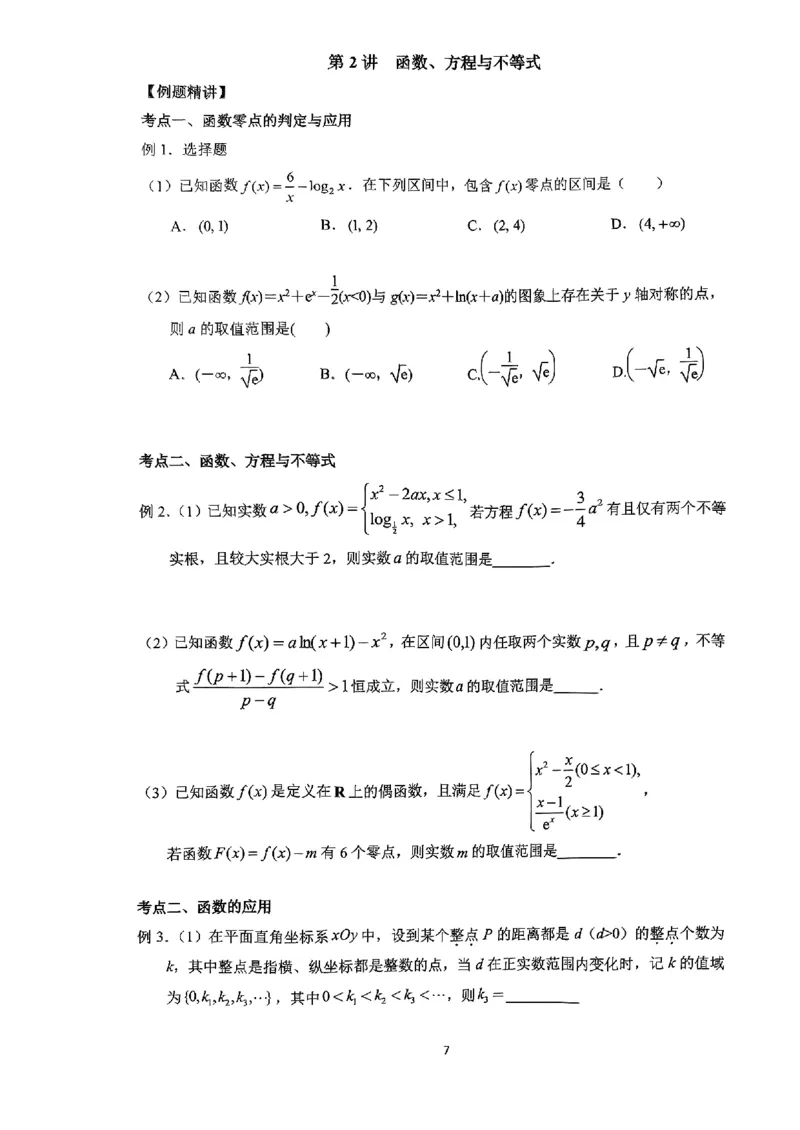 第 2 讲 函数、方程与不等式
【例题精讲】
考点一、函数零点的判定与应用
例 1．选择题
（1）已知函数 f(x) = 6/x − log₂ x．在下列区间中，包含 f(x) 零点的区间是（ ）
A．(0, 1) B．(1, 2) C．(2, 4) D．(4, +∞)
（2）已知函数 f(x)＝x²＋eˣ－1/2(x<0)与 g(x)＝x²＋ln(x＋a)的图象上存在关于 y 轴对称的点，
则 a 的取值范围是( )
A．(－∞，1/√e) B．(－∞，√e) C.(－1/√e，√e) D.(－√e，1/√e)
考点二、函数、方程与不等式
例 2．（1）已知实数 a > 0, f(x) = { x² − 2ax, x ≤ 1, log_{1/2} x, x > 1, 若方程 f(x) = −3/4 a² 有且仅有两个不等
实根，且较大实根大于 2，则实数 a 的取值范围是______．
（2）已知函数 f(x) = a ln(x + 1) − x²，在区间 (0,1) 内任取两个实数 p,q，且 p ≠ q，不等
式 (f(p+1) − f(q+1))/(p − q) > 1 恒成立，则实数 a 的取值范围是_____．
（3）已知函数 f(x) 是定义在 R 上的偶函数，且满足 f(x) = { x² − x/2 (0 ≤ x < 1), (x−1)/eˣ (x ≥ 1) ，
若函数 F(x) = f(x) − m 有 6 个零点，则实数 m 的取值范围是______．
考点二、函数的应用
例 3．（1）在平面直角坐标系 xOy 中，设到某个整点 P 的距离都是 d（d>0）的整点个数为
k，其中整点是指横、纵坐标都是整数的点，当 d 在正实数范围内变化时，记 k 的值域
为 {0,k₁,k₂,k₃,⋯}，其中 0 < k₁ < k₂ < k₃ < ⋯，则 k₃ = ________
7